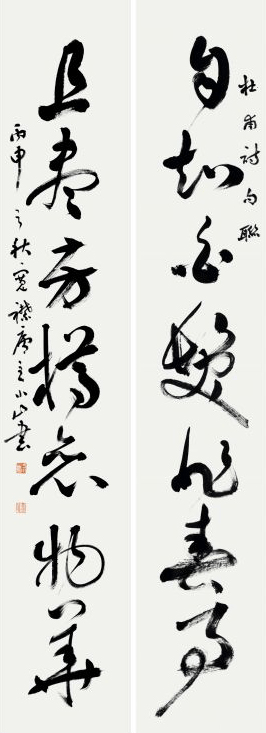 杜甫詩句聯
自知白髮非春事
且盡芳樽戀物華
丙申之秋寬襟主小山書